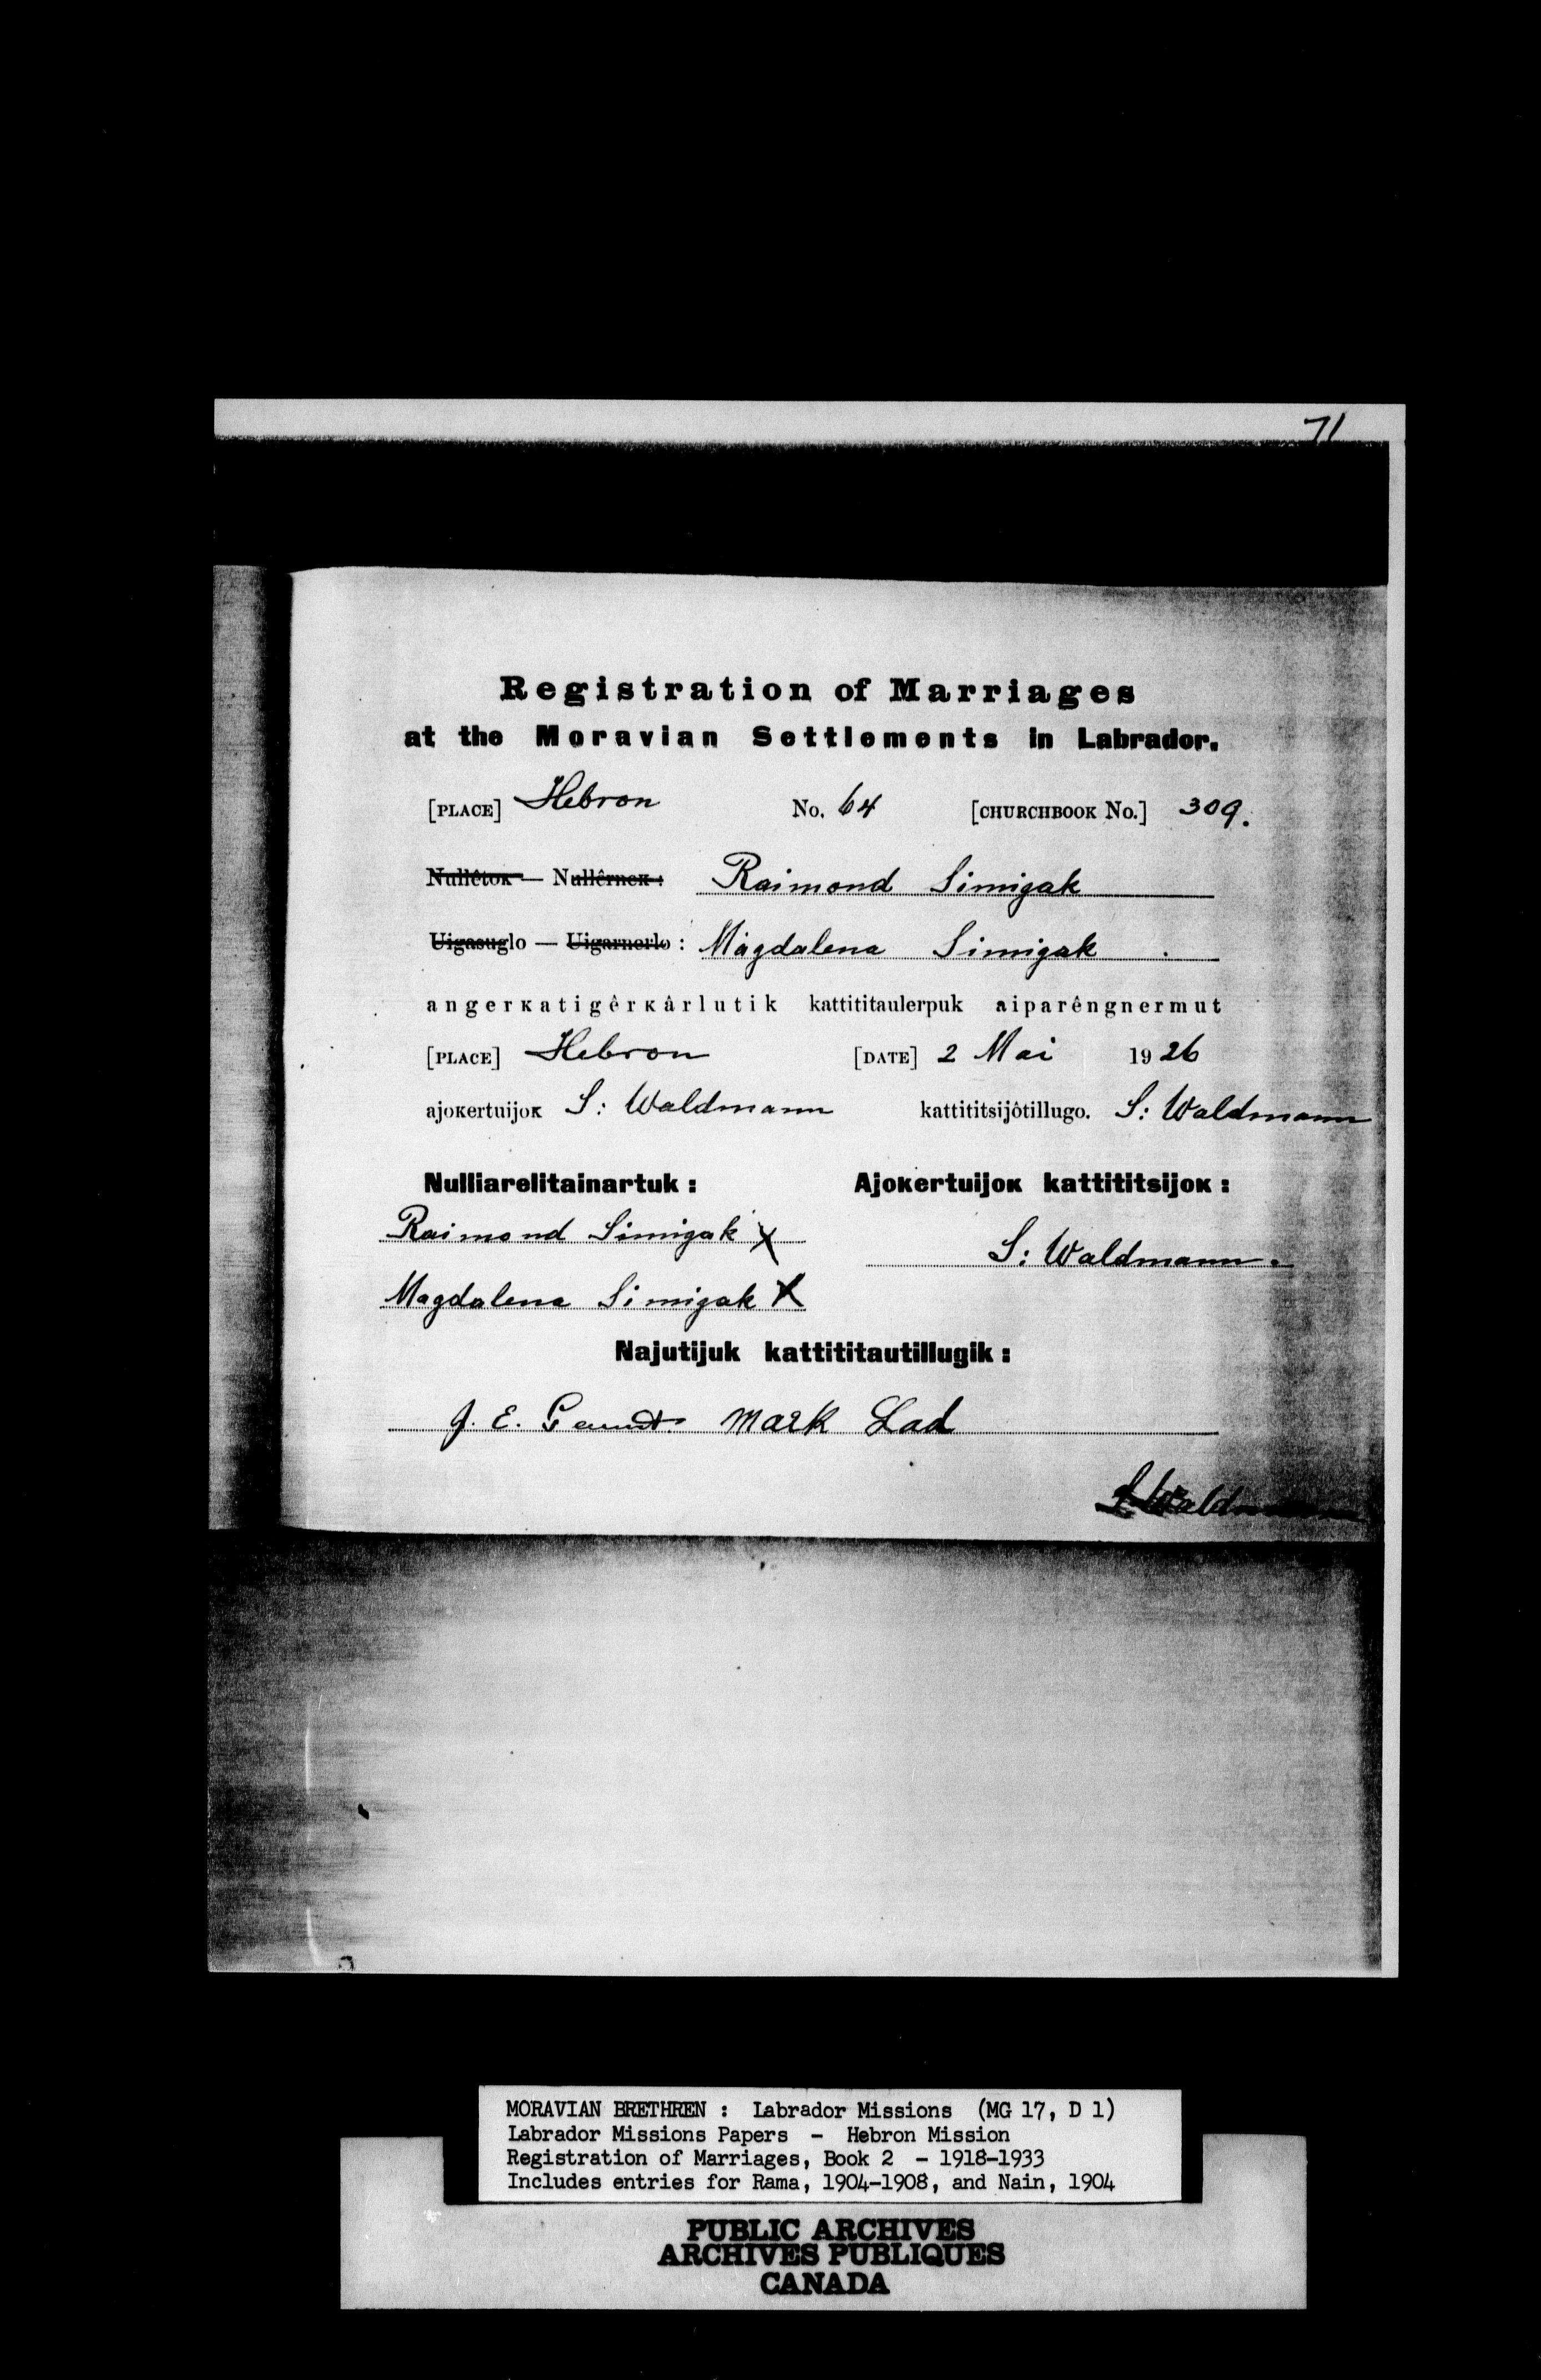 71
Registration of Marriages
at the Moravian Settlements in Labrador.
[PLACE] Hebron No. 64 [CHURCHBOOK No.] 309.
Nullêtoĸ — Nullêrneĸ : Raimond Simigak
Uigasuglo — Uigarnerlo : Magdalena Simigak .
angerĸatigêrĸârlutik kattititaulerpuk aiparêngnermut
[PLACE] Hebron [DATE] 2 Mai 1926
ajoĸertuijoĸ S: Waldmann kattititsijôtillugo. S: Waldmann
Nulliarelitainartuk : Ajoĸertuijoĸ kattititsijoĸ :
Raimond Simigak X
S: Waldmann.
Magdalena Simigak X
Najutijuk kattititautillugik :
J. E. Mark Lad
S Waldmann
MORAVIAN BRETHREN : Labrador Missions (MG 17, D 1)
Labrador Missions Papers - Hebron Mission
Registration of Marriages, Book 2 - 1918-1933
Includes entries for Rama, 1904-1908, and Nain, 1904
PUBLIC ARCHIVES
ARCHIVES PUBLIQUES
CANADA